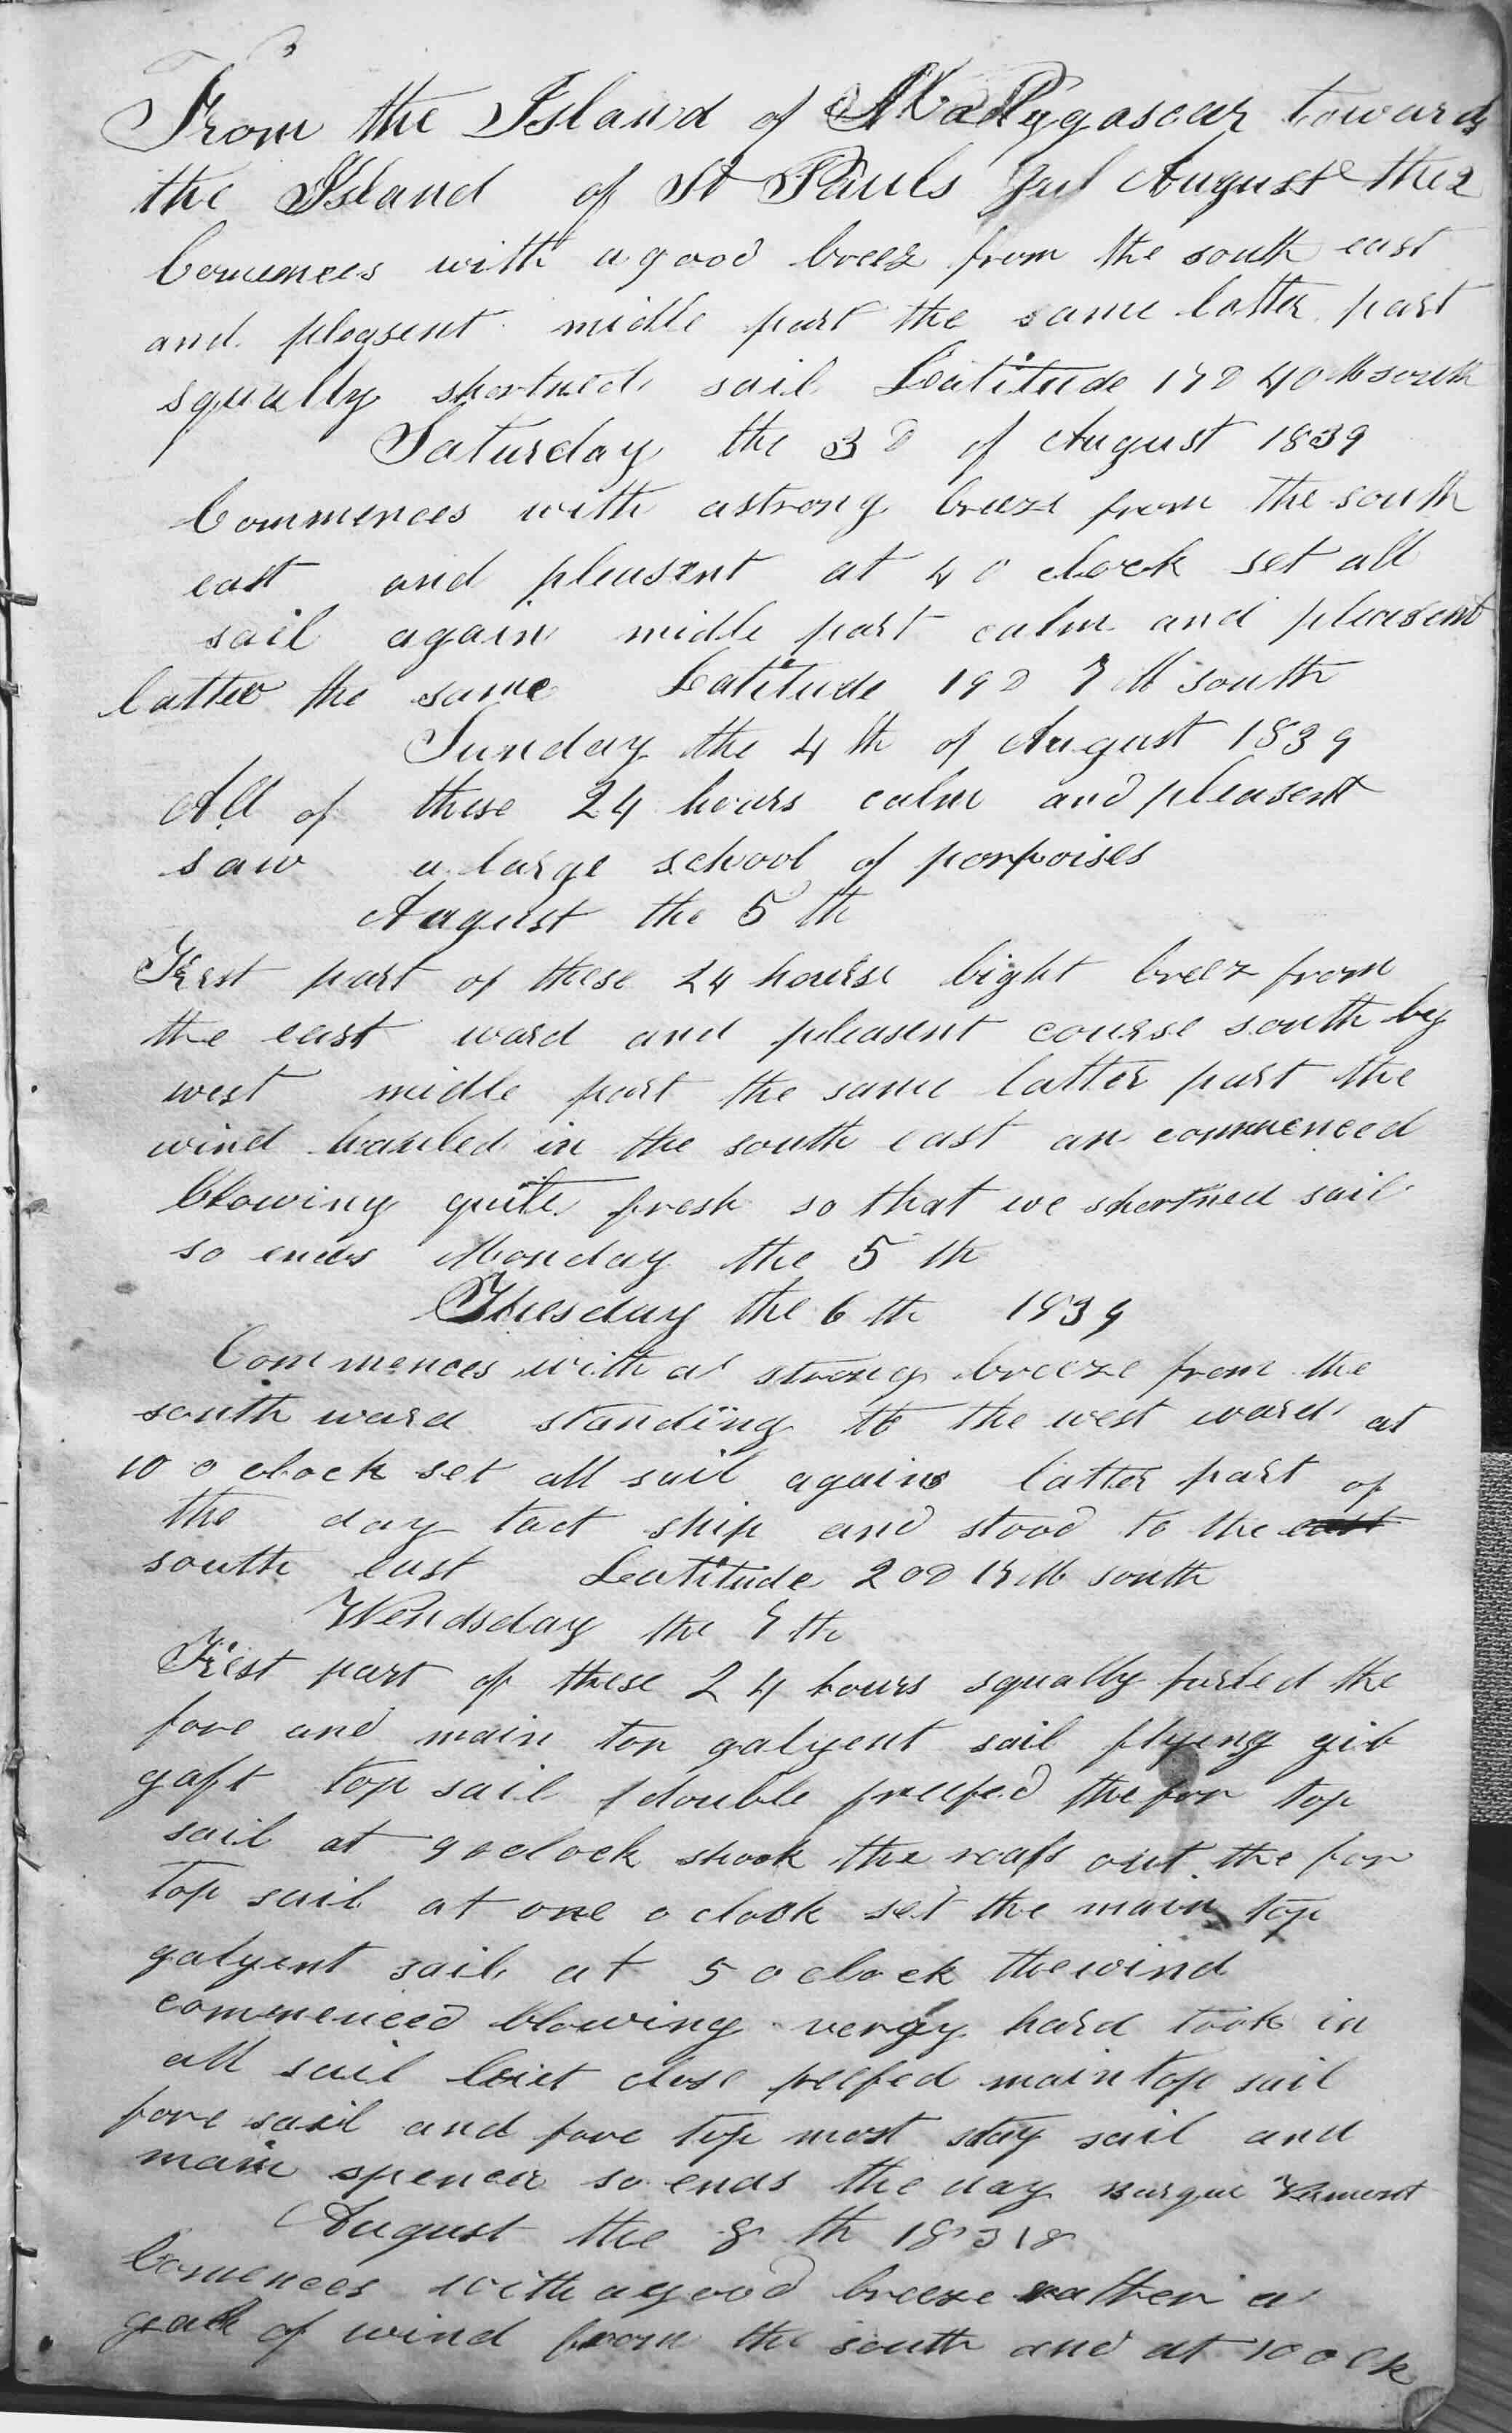 From the Island of Madygascar towards
the Island of St Pauls Jul August the 2
Comences with a good breez from the south east
and pleasent midle part the same latter part
squally shortned sail Latitude 17D 40M south
Saturday the 3D of August 1839
Commences with a strong breeze from the south
east and pleasent at 4 O clock set all
sail again midle part calm and pleasent
latter the same Latitude 19D 7M south
Sunday the 4th of August 1839
All of these 24 hours calm and pleasent
saw a large school of porpoises
August the 5th
First part of these 24 hourse light breez from
the east ward and pleasent course south by
west midle part the same latter part the
wind hauled in the south east an commenced
blowing quite fresh so that we shortned sail
so ends Monday the 5th
Thuesday the 6th 1839
Commences with a strong breeze from the
south ward standing to the west ward at
10 o clock set all sail again latter part of
the day tact ship and stood to the east
south east Latitude 20D 17M south
Wendsday the 7th
First part of these 24 hours squally furled the
fore and main top galyent sail flying gib
gaft top sail double reefed the for top
sail at 9 oclock shook the reafs out the for
top sail at one o clook set the main top
galyent sail at 5 o clock the wind
commenced blowing very hard took in
all sail but close reefed main top sail
fore sail and fore top most stay sail and
main spencer so ends the day Barque Vermont
August the 8th 1838
Comences with a good breeze rather a
gale of wind from the south and at 10 o ck